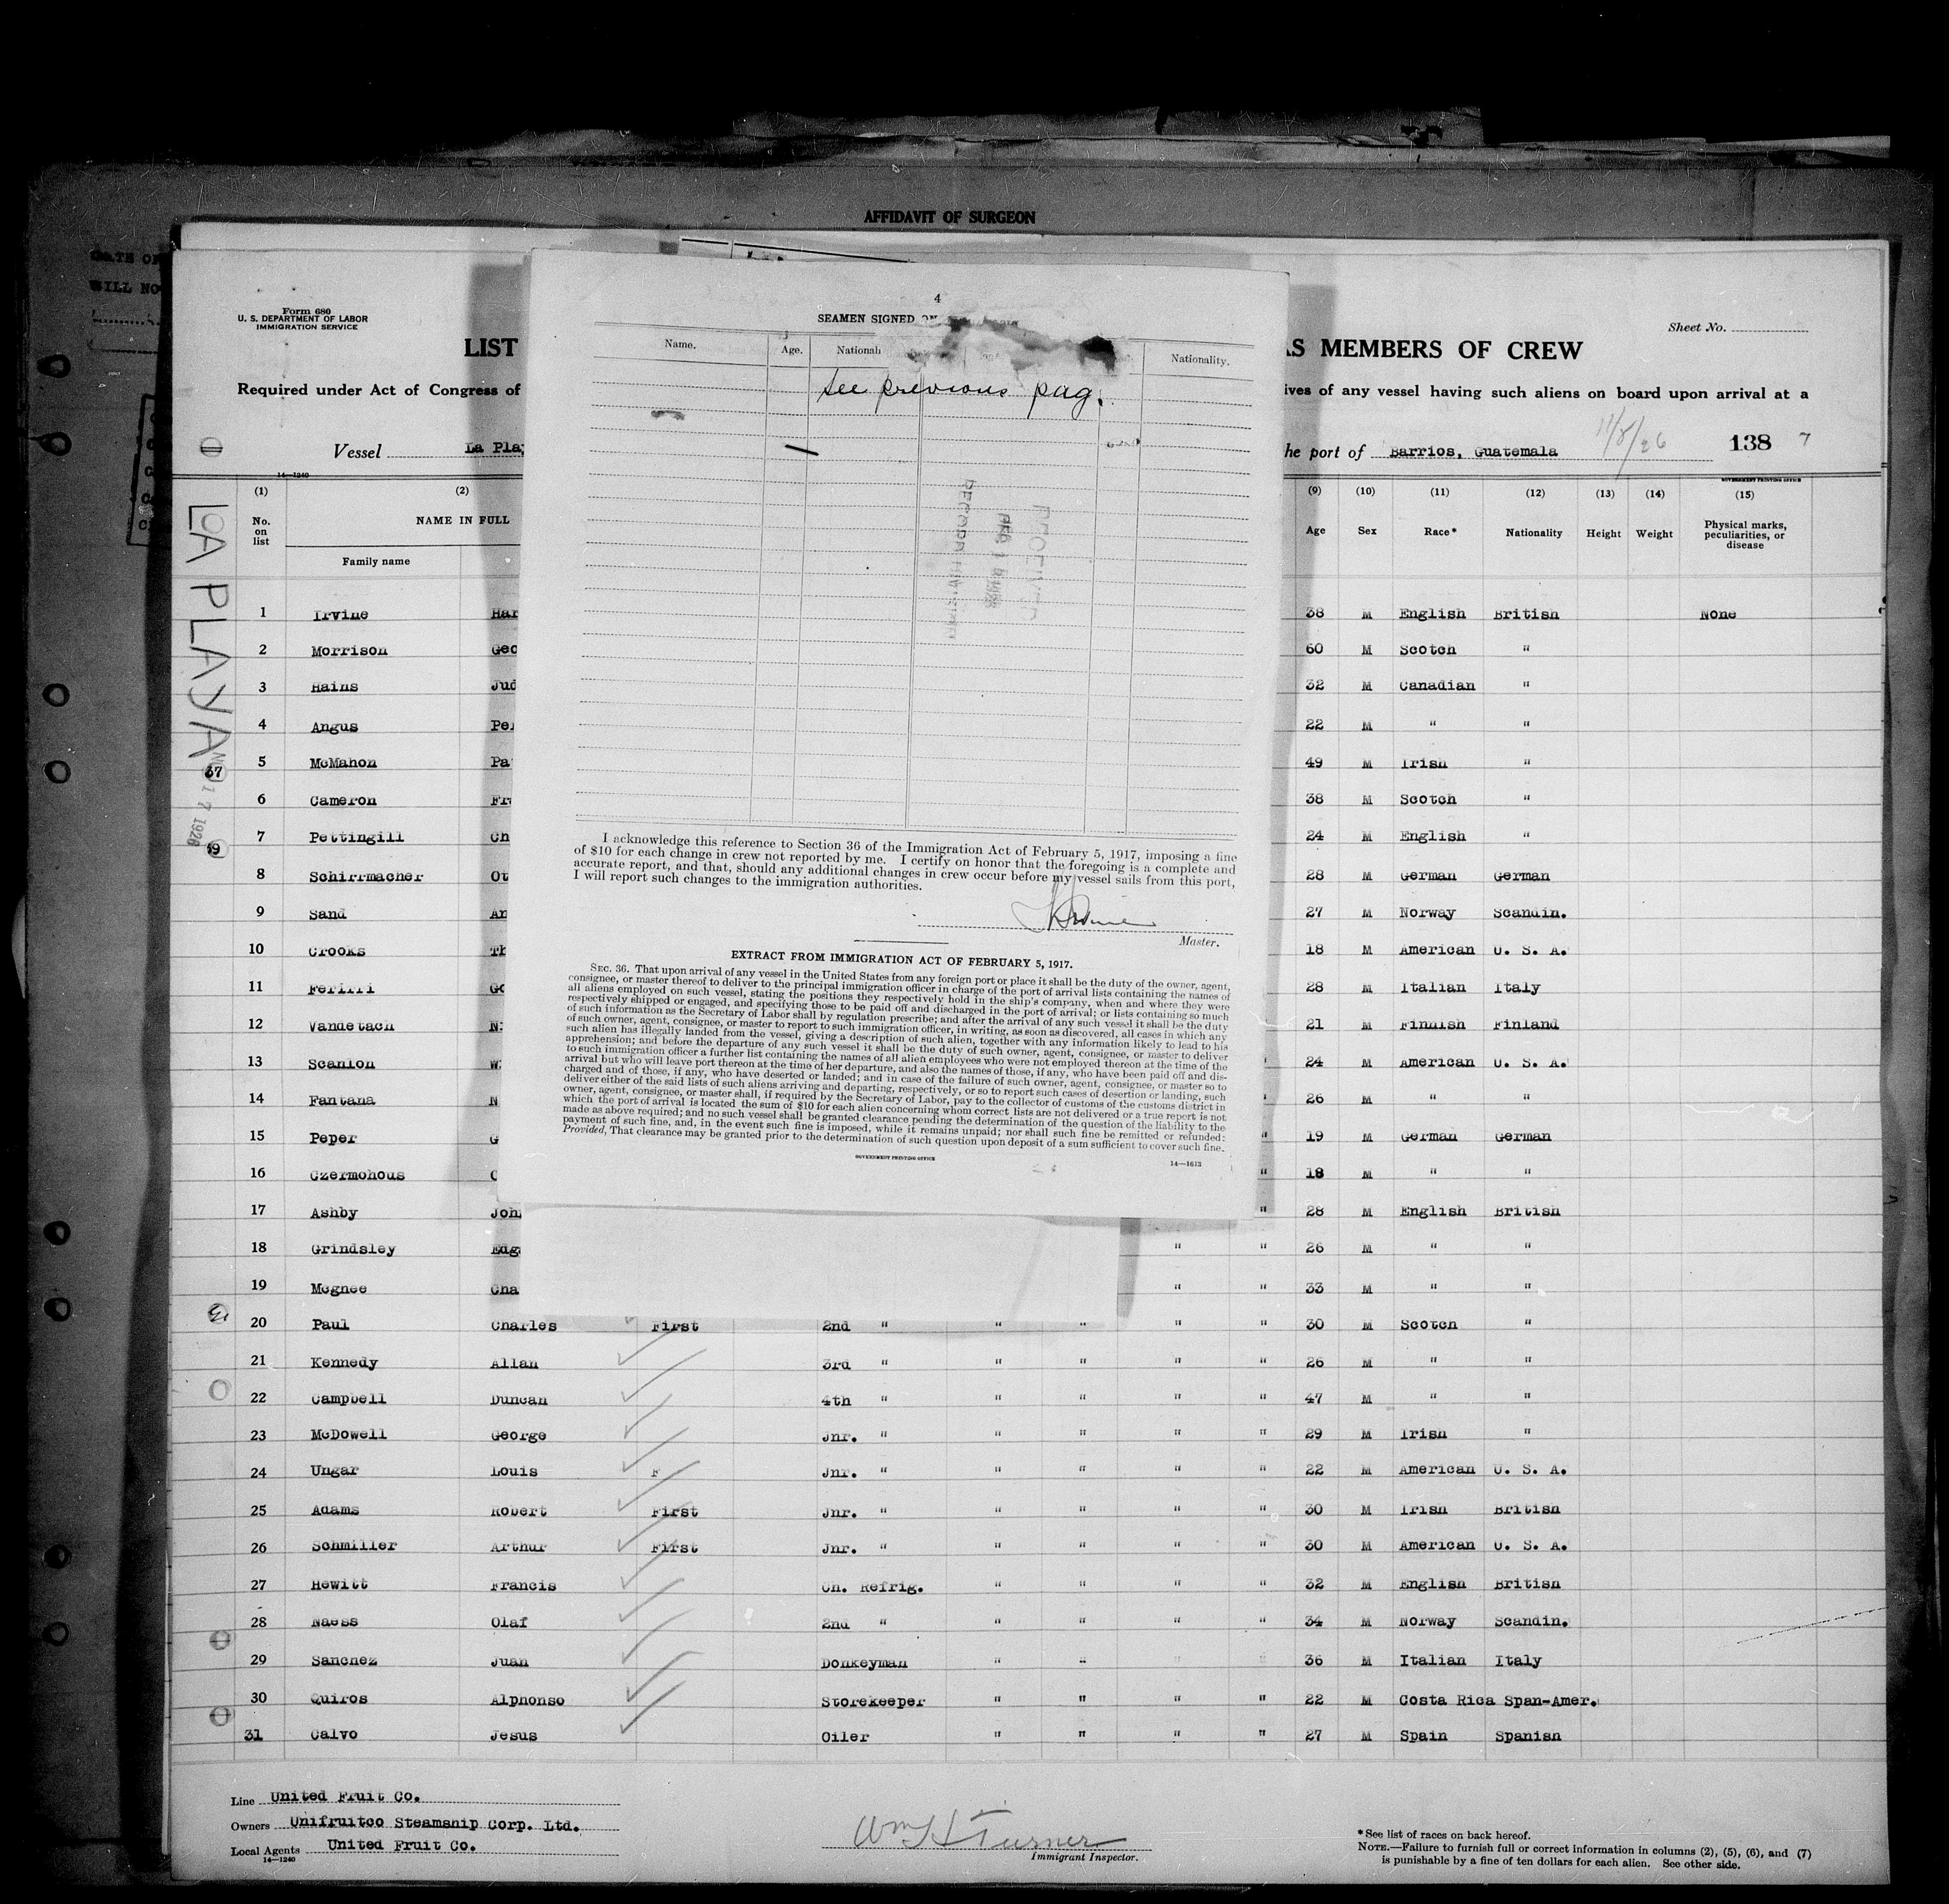 AFFIDAVIT OF SURGEON
WILL NO
Form 680
U. S. DEPARTMENT OF LABOR
IMMIGRATION SERVICE
Sheet No.
LIST
AS MEMBERS OF CREW
Required under Act of Congress of
ives of any vessel having such aliens on board upon arrival at a
Vessel La Pla
he port of Barrios, Guatemala 11/8/26 138 7
14—1240
GOVERNMENT PRINTING OFFICE
LA PLAYA
17 1926
(1) (2) (9) (10) (11) (12) (13) (14) (15)
No. on list NAME IN FULL Age Sex Race* Nationality Height Weight Physical marks, peculiarities, or disease
Family name
1 Irvine Har 38 M English British None
2 Morrison Geo 60 M Scotch "
3 Hains Jud 32 M Canadian "
4 Angus Pe 22 M " "
5 McMahon Pa 49 M Irish "
6 Cameron Fr 38 M Scotch "
7 Pettingill Ch 24 M English "
8 Schirrmacher Ot 28 M German German
9 Sand An 27 M Norway Scandin.
10 Crooks Th 18 M American U. S. A.
11 Ferilli Go 28 M Italian Italy
12 Vandetach N 21 M Finnish Finland
13 Scanlon W 24 M American U. S. A.
14 Fantana N 26 M " "
15 Peper G " 19 M German German
16 Czermohous " 18 M " "
17 Ashby Joh " 28 M English British
18 Grindsley Edg " " 26 M " "
19 Mcghee Cha " " 33 M " "
20 Paul Charles First 2nd " " " " " 30 M Scotch "
21 Kennedy Allan 3rd " " " " " 26 M " "
22 Campbell Duncan 4th " " " " " 47 M " "
23 McDowell George Jnr. " " " " " 29 M Irish "
24 Ungar Louis F Jnr. " " " " " 22 M American U. S. A.
25 Adams Robert First Jnr. " " " " " 30 M Irish British
26 Schmiller Arthur First Jnr. " " " " " 30 M American U. S. A.
27 Hewitt Francis Ch. Refrig. " " " " 32 M English British
28 Naess Olaf 2nd " " " " " 34 M Norway Scandin.
29 Sanchez Juan Donkeyman " " " " 36 M Italian Italy
30 Quiros Alphonso Storekeeper " " " " 22 M Costa Rica Span-Amer.
31 Calvo Jesus Oiler " " " " 27 M Spain Spanish
Line United Fruit Co.
Owners Unifruitco Steamship Corp. Ltd.
Local Agents United Fruit Co.
14—1240
Wm H Turner
Immigrant Inspector.
*See list of races on back hereof.
NOTE.—Failure to furnish full or correct information in columns (2), (5), (6), and (7)
is punishable by a fine of ten dollars for each alien. See other side.
4
SEAMEN SIGNED ON
Name. Age. Nationali Nationality.
See previous pag.
RECEIVED
RECORD DIVISION
I acknowledge this reference to Section 36 of the Immigration Act of February 5, 1917, imposing a fine
of $10 for each change in crew not reported by me. I certify on honor that the foregoing is a complete and
accurate report, and that, should any additional changes in crew occur before my vessel sails from this port,
I will report such changes to the immigration authorities.
Master.
EXTRACT FROM IMMIGRATION ACT OF FEBRUARY 5, 1917.
SEC. 36. That upon arrival of any vessel in the United States from any foreign port or place it shall be the duty of the owner, agent,
consignee, or master thereof to deliver to the principal immigration officer in charge of the port of arrival lists containing the names of
all aliens employed on such vessel, stating the positions they respectively hold in the ship's company, when and where they were
respectively shipped or engaged, and specifying those to be paid off and discharged in the port of arrival; or lists containing so much
of such information as the Secretary of Labor shall by regulation prescribe; and after the arrival of any such vessel it shall be the duty
of such owner, agent, consignee, or master to report to such immigration officer, in writing, as soon as discovered, all cases in which any
such alien has illegally landed from the vessel, giving a description of such alien, together with any information likely to lead to his
apprehension; and before the departure of any such vessel it shall be the duty of such owner, agent, consignee, or master to deliver
to such immigration officer a further list containing the names of all alien employees who were not employed thereon at the time of the
arrival but who will leave port thereon at the time of her departure, and also the names of those, if any, who have been paid off and dis-
charged and of those, if any, who have deserted or landed; and in case of the failure of such owner, agent, consignee, or master so to
deliver either of the said lists of such aliens arriving and departing, respectively, or so to report such cases of desertion or landing, such
owner, agent, consignee, or master shall, if required by the Secretary of Labor, pay to the collector of customs of the customs district in
which the port of arrival is located the sum of $10 for each alien concerning whom correct lists are not delivered or a true report is not
made as above required; and no such vessel shall be granted clearance pending the determination of the question of the liability to the
payment of such fine, and, in the event such fine is imposed, while it remains unpaid; nor shall such fine be remitted or refunded:
Provided, That clearance may be granted prior to the determination of such question upon deposit of a sum sufficient to cover such fine.
GOVERNMENT PRINTING OFFICE
14—1613